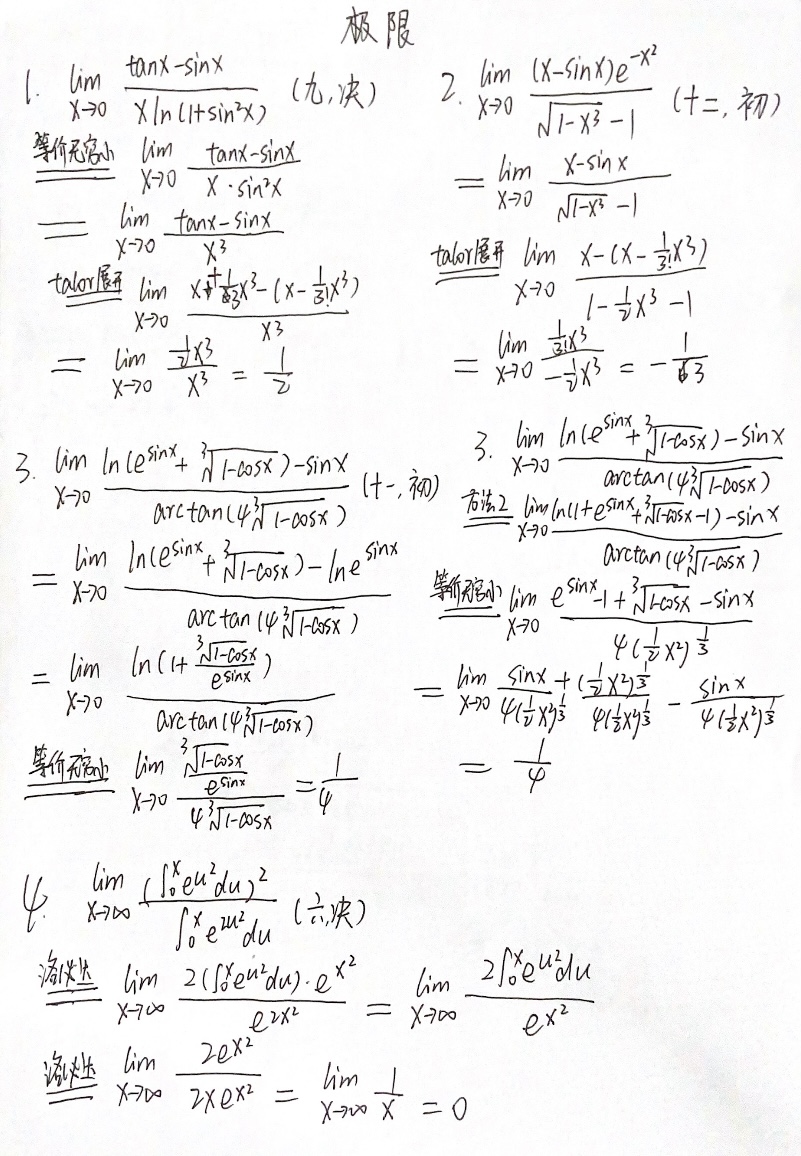 极限
1. lim_{x→0} (tanx-sinx)/(x ln(1+sin²x)) (九,决)
等价无穷小 lim_{x→0} (tanx-sinx)/(x·sin²x)
= lim_{x→0} (tanx-sinx)/x³
talor展开 lim_{x→0} (x+1/3 x³-(x-1/3! x³))/x³
= lim_{x→0} (1/2 x³)/x³ = 1/2
2. lim_{x→0} ((x-sinx)e^{-x²})/(√(1-x³) -1) (十二,初)
= lim_{x→0} (x-sinx)/(√(1-x³) -1)
talor展开 lim_{x→0} (x-(x-1/3! x³))/(1-1/2 x³-1)
= lim_{x→0} (1/3! x³)/(-1/2 x³) = -1/3
3. lim_{x→0} (ln(e^{sinx}+∛(1-cosx))-sinx)/(arctan(4∛(1-cosx))) (十一,初)
= lim_{x→0} (ln(e^{sinx}+∛(1-cosx))-lne^{sinx})/(arctan(4∛(1-cosx)))
= lim_{x→0} (ln(1+∛(1-cosx)/e^{sinx}))/(arctan(4∛(1-cosx)))
等价无穷小 lim_{x→0} (∛(1-cosx)/e^{sinx})/(4∛(1-cosx)) = 1/4
3. lim_{x→0} (ln(e^{sinx}+∛(1-cosx))-sinx)/(arctan(4∛(1-cosx)))
方法2 lim_{x→0} (ln(1+e^{sinx}+∛(1-cosx)-1)-sinx)/(arctan(4∛(1-cosx)))
等价无穷小 lim_{x→0} (e^{sinx}-1+∛(1-cosx)-sinx)/(4(1/2 x²)^{1/3})
= lim_{x→0} sinx/(4(1/2 x²)^{1/3}) + (1/2 x²)^{1/3}/(4(1/2 x²)^{1/3}) - sinx/(4(1/2 x²)^{1/3})
= 1/4
4. lim_{x→∞} (∫₀ˣ e^{u²}du)²/(∫₀ˣ e^{2u²}du) (六,决)
洛必达 lim_{x→∞} (2(∫₀ˣ e^{u²}du)·e^{x²})/e^{2x²} = lim_{x→∞} (2∫₀ˣ e^{u²}du)/e^{x²}
洛必达 lim_{x→∞} (2e^{x²})/(2xe^{x²}) = lim_{x→∞} 1/x = 0